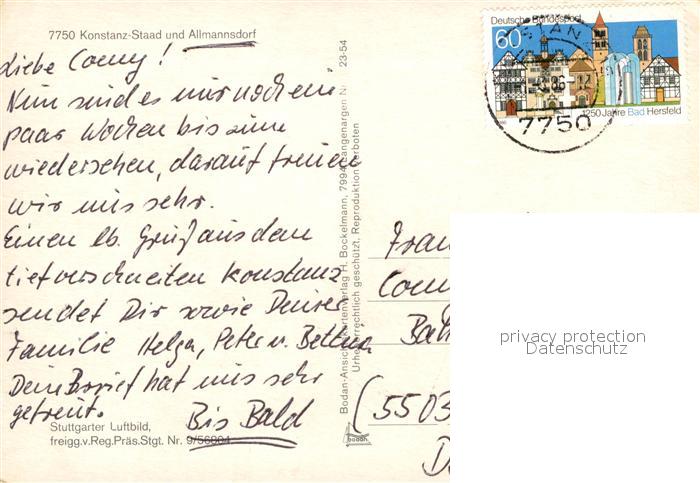 7750 Konstanz-Staad und Allmannsdorf
Deutsche Bundespost
60
1250 Jahre Bad Hersfeld
7750
Liebe Conny!
Nun sind es nur noch ein
paar Wochen bis zum
wiedersehen, darauf freuen
wir uns sehr.
Einen lb. Gruß aus dem
tiefverschneiten Konstanz
sendet Dir sowie Deiner
Familie Helga, Peter u. Bettina
Dein Brief hat uns sehr
gefreut. Bis Bald
Stuttgarter Luftbild,
freigg.v.Reg.Präs.Stgt. Nr. 9/56804
Bodan-Ansichtskartenverlag H. Bockelmann, 7994 Langenargen Nr. 23-54
Urheberrechtlich geschützt. Reproduktion verboten
bodan
Fran
Conn
Bah
(5503
D
privacy protection
Datenschutz